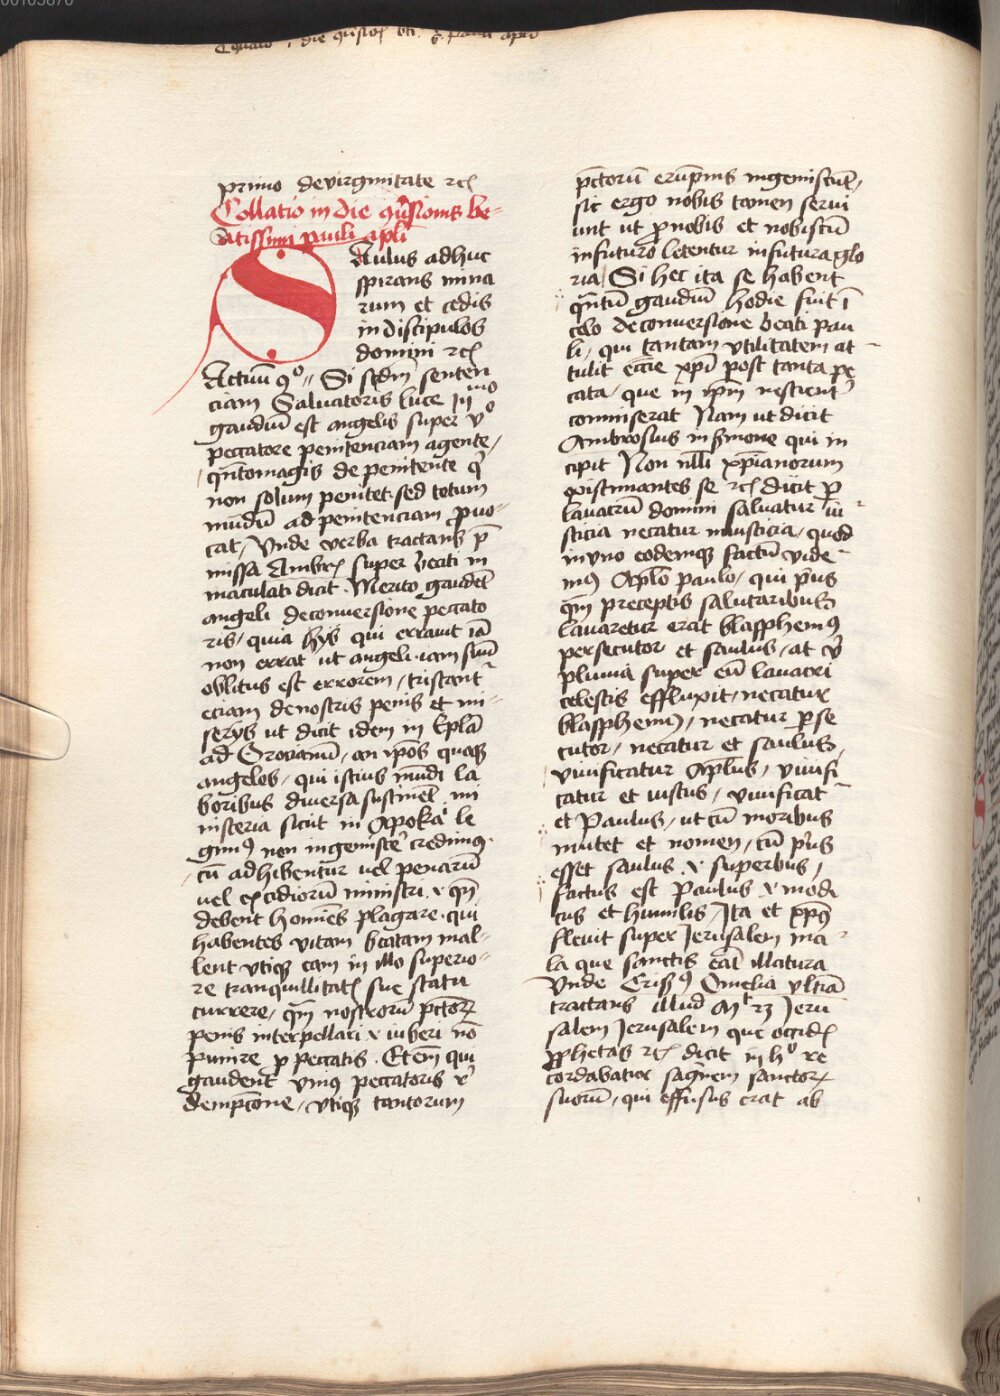 00103870
primo de virginitate rcꝭ
Collatio in die ꝯv̄sionis be-
atissimi pauli apl̄i
SAulus adhuc
spirans mina
rum et cedis
in discipulos
domini rcꝭ
Actuū 9º Si scd̄m senten
ciam Saluatoris luce
gaudiū est angelis super vº
peccatore penitenciam agente /
qn̄tomagis de penitente q̄
non solum penitet sed totum
mūdū ad penitenciam ꝓuo-
cat / Vnde verba tractans p̄
missa Ambrꝭ super beati in
maculati dicit . Merito gaudēt
angeli de conuersione peccato
ris / quia hijs qui errauit iā
non errat ut angeli . iam suū
oblitus est errorem / tristant~
eciam de nostris penis et mi-
serijs ut dicit idem in Epl̄a
ad Oroꝛianū / an ip̄os quoqꝫ
angelos / qui istius mūdi la
boribus diuersa sustinēt mi
nisteria sicut in Apoka le
gimꝰ non ingemisce᷑ credimꝰ
cū adhibentur uel penarū
uel excidiorū ministri . v qm̄
debent homīes plagare . qui
habentes vitam btātam mal-
lent vtiqꝫ eam in illo superio-
re tranquillitatꝭ sue statu
currere / qm̄ nostrorū pctōꝝ
penis interpellari v iuberi nō
punire ꝓ peccatis . Etem̄ qui
gaudent vniꝰ peccatoris r᷑
dempcōne / vtiqꝫ tantorum
pctōrū erūpnis ingemiscūt /
sic ergo nobis tamen serui
unt ut ꝓ nobis et nobiscū
in futuro letentur in futura glo
ria / Si hec ita se habent
qn̄tū gaudiū hodie fuit ī
celo de conuersione beati pau
li / qui tantam vtilitatem at
tulit ecc̄ie xp̄i post tanta pe
cata / que in ip̄m nescient᷑
commiserat Nam ut dicit
Ambrosius in s̄mone qui in
cipit Non nl̄li xp̄ianorum
existimantes se rcꝭ dicit ꝑ
lauacrū domini saluatur iu
sticia necatur iniusticia / quod
in vno eodemqꝫ factū vide
mꝰ Apl̄o paulo / qui p᷑us
qm̄ preceptis salutaribus
lauaretur erat blasphemꝰ
persecutor et saulus / at v᷑
pluuia super eū lauacri
celestis effluxit / necatur
blasphemꝰ / necatur ꝑse
cutor / necatur et saulus
viuificatur Apl̄us / viuifi
catur et iustus / viuificat~
et Paulus / ut cū moribus
mutet et nomen / cū p᷑us
esset saulus .v superbus /
factus est Paulus .v mode
cus et humilis / Ita et xp̄ꝰ
fleuit super Jerusalem ma
la que sanctis eāt illatura
Vnde Crissꝰ Omelia vltīa
tractans illud Mᵗ 23 Jeru
salem Jerusalem que occidꝭ
ꝓphetas rcꝭ dicit in hº re
cordabatur sagnem sanctoꝝ
suorū / qui effusus erat ab